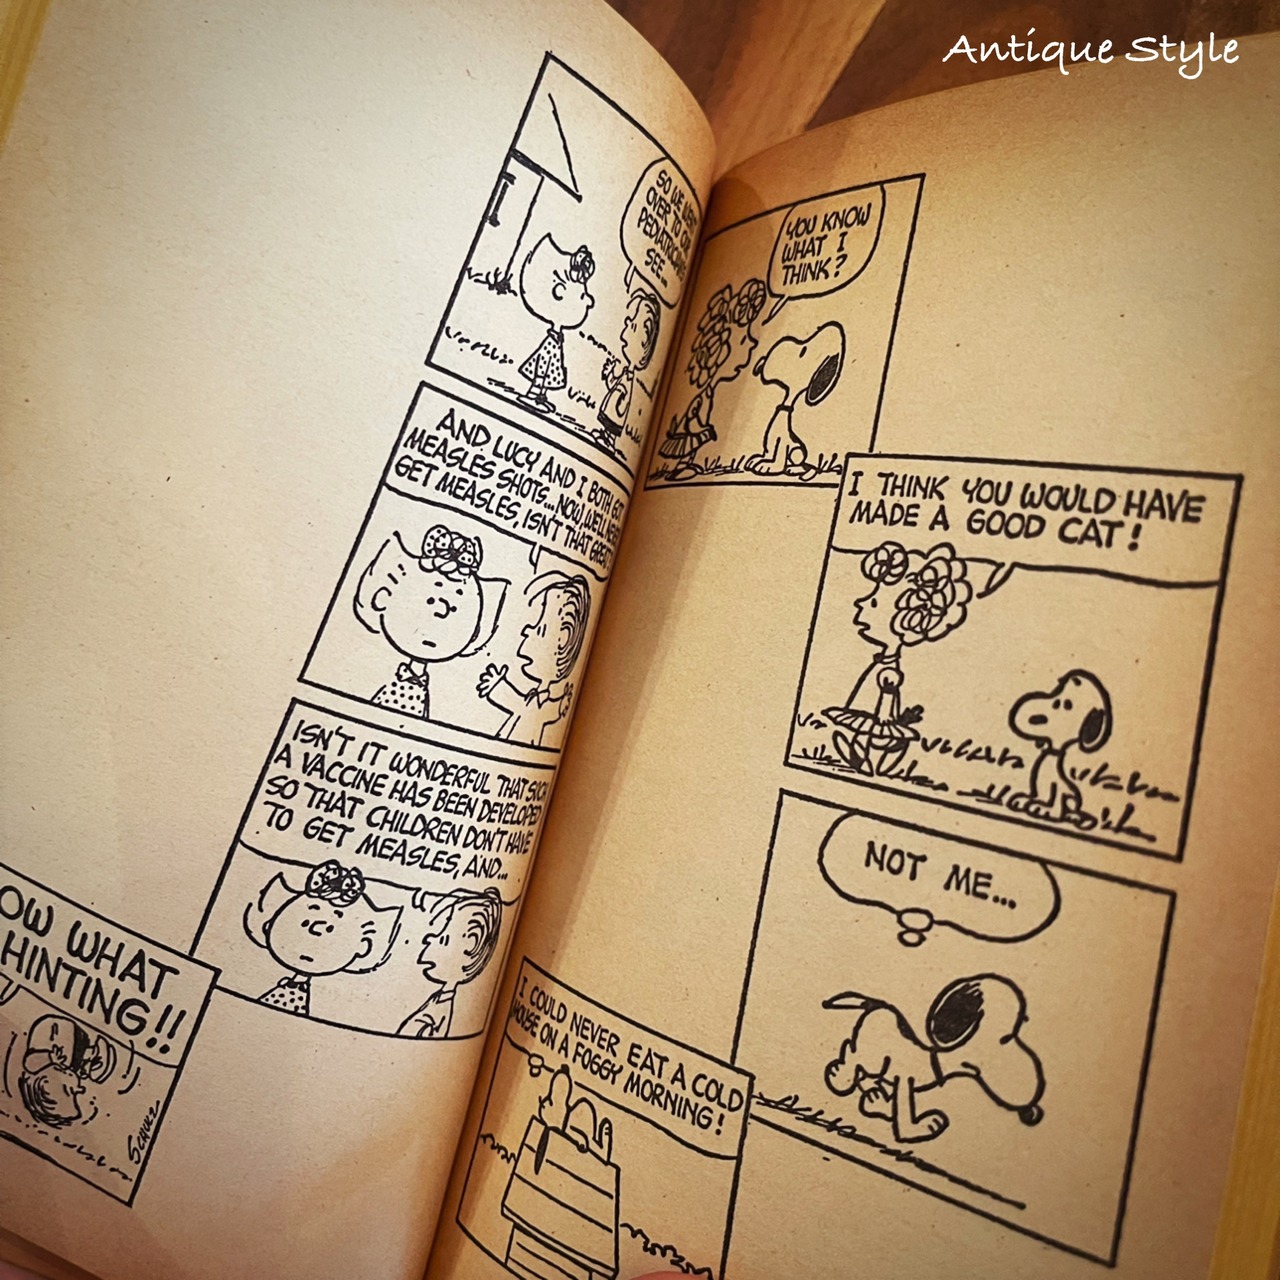 Antique Style
SO WE
OVER TO OUR
SEE...
AND LUCY AND I BOTH
MEASLES SHOTS...NOW, WE'LL
GET MEASLES, ISN'T THAT
ISN'T IT WONDERFUL THAT SUCH
A VACCINE HAS BEEN DEVELOPED
SO THAT CHILDREN DON'T HAVE
TO GET MEASLES, AND...
WHAT
HINTING!!
SCHULZ
YOU KNOW
WHAT I
THINK?
I THINK YOU WOULD HAVE
MADE A GOOD CAT!
NOT ME...
I COULD NEVER EAT A COLD
MOUSE ON A FOGGY MORNING!